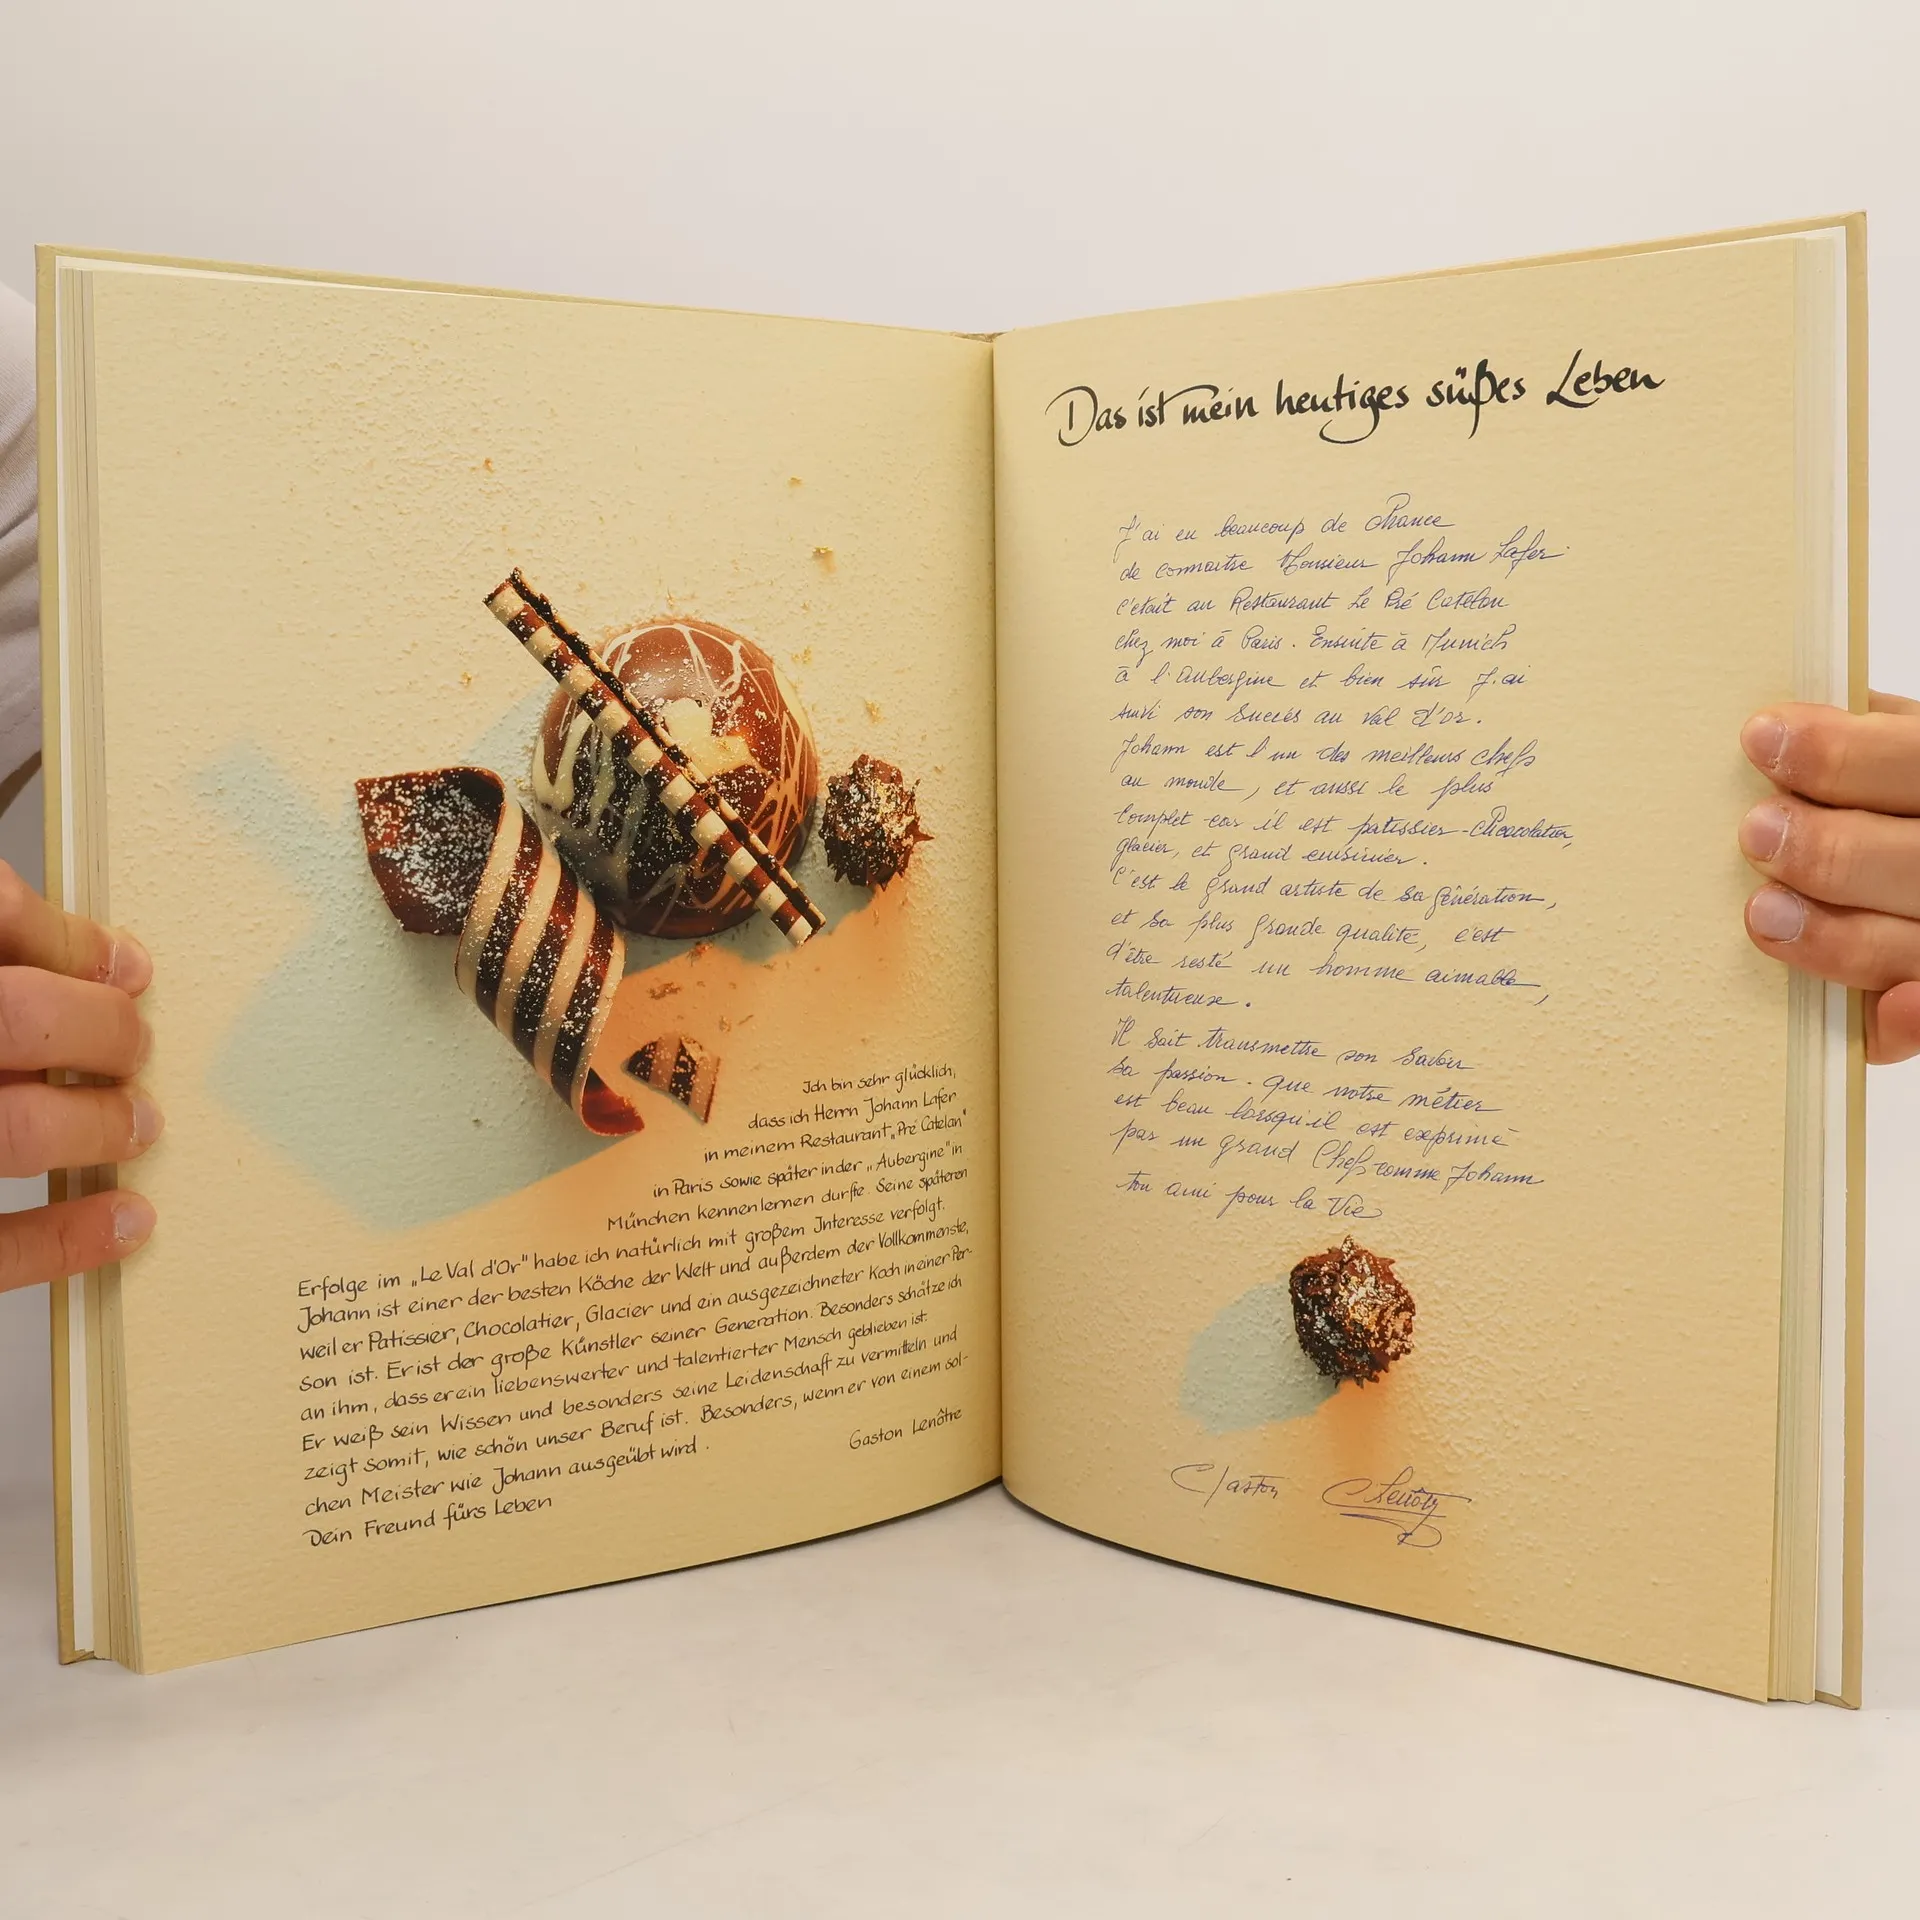 Ich bin sehr glücklich,
dass ich Herrn Johann Lafer
in meinem Restaurant „Pré Catelan"
in Paris sowie später in der „Aubergine" in
München kennenlernen durfte. Seine späteren
Erfolge im „Le Val d'Or" habe ich natürlich mit großem Interesse verfolgt.
Johann ist einer der besten Köche der Welt und außerdem der Vollkommenste,
weil er Patissier, Chocolatier, Glacier und ein ausgezeichneter Koch in einer Per-
son ist. Er ist der große Künstler seiner Generation. Besonders schätze ich
an ihm, dass er ein liebenswerter und talentierter Mensch geblieben ist.
Er weiß sein Wissen und besonders seine Leidenschaft zu vermitteln und
zeigt somit, wie schön unser Beruf ist. Besonders, wenn er von einem sol-
chen Meister wie Johann ausgeübt wird.
Dein Freund fürs Leben
Gaston Lenôtre
Das ist mein heutiges süßes Leben
J'ai eu beaucoup de Chance
de connaitre Monsieur Johann Lafer.
c'etait au Restaurant Le Pré Catelan
chez moi à Paris. Ensuite à Munich
à l'Aubergine et bien sûr J'ai
suivi son Succès au Val d'or.
Johann est l'un des meilleurs chefs
au monde, et aussi le plus
Complet car il est patissier-Chocolatier,
glacier, et grand cuisinier.
C'est le grand artiste de sa génération,
et sa plus grande qualité, c'est
d'être resté un homme aimable,
talentueuse.
Il Sait transmettre son Savoir
sa passion. que notre métier
est beau lorsqu'il est exprimé
par un grand Chef comme Johann
ton ami pour la Vie
Gaston Lenôtre